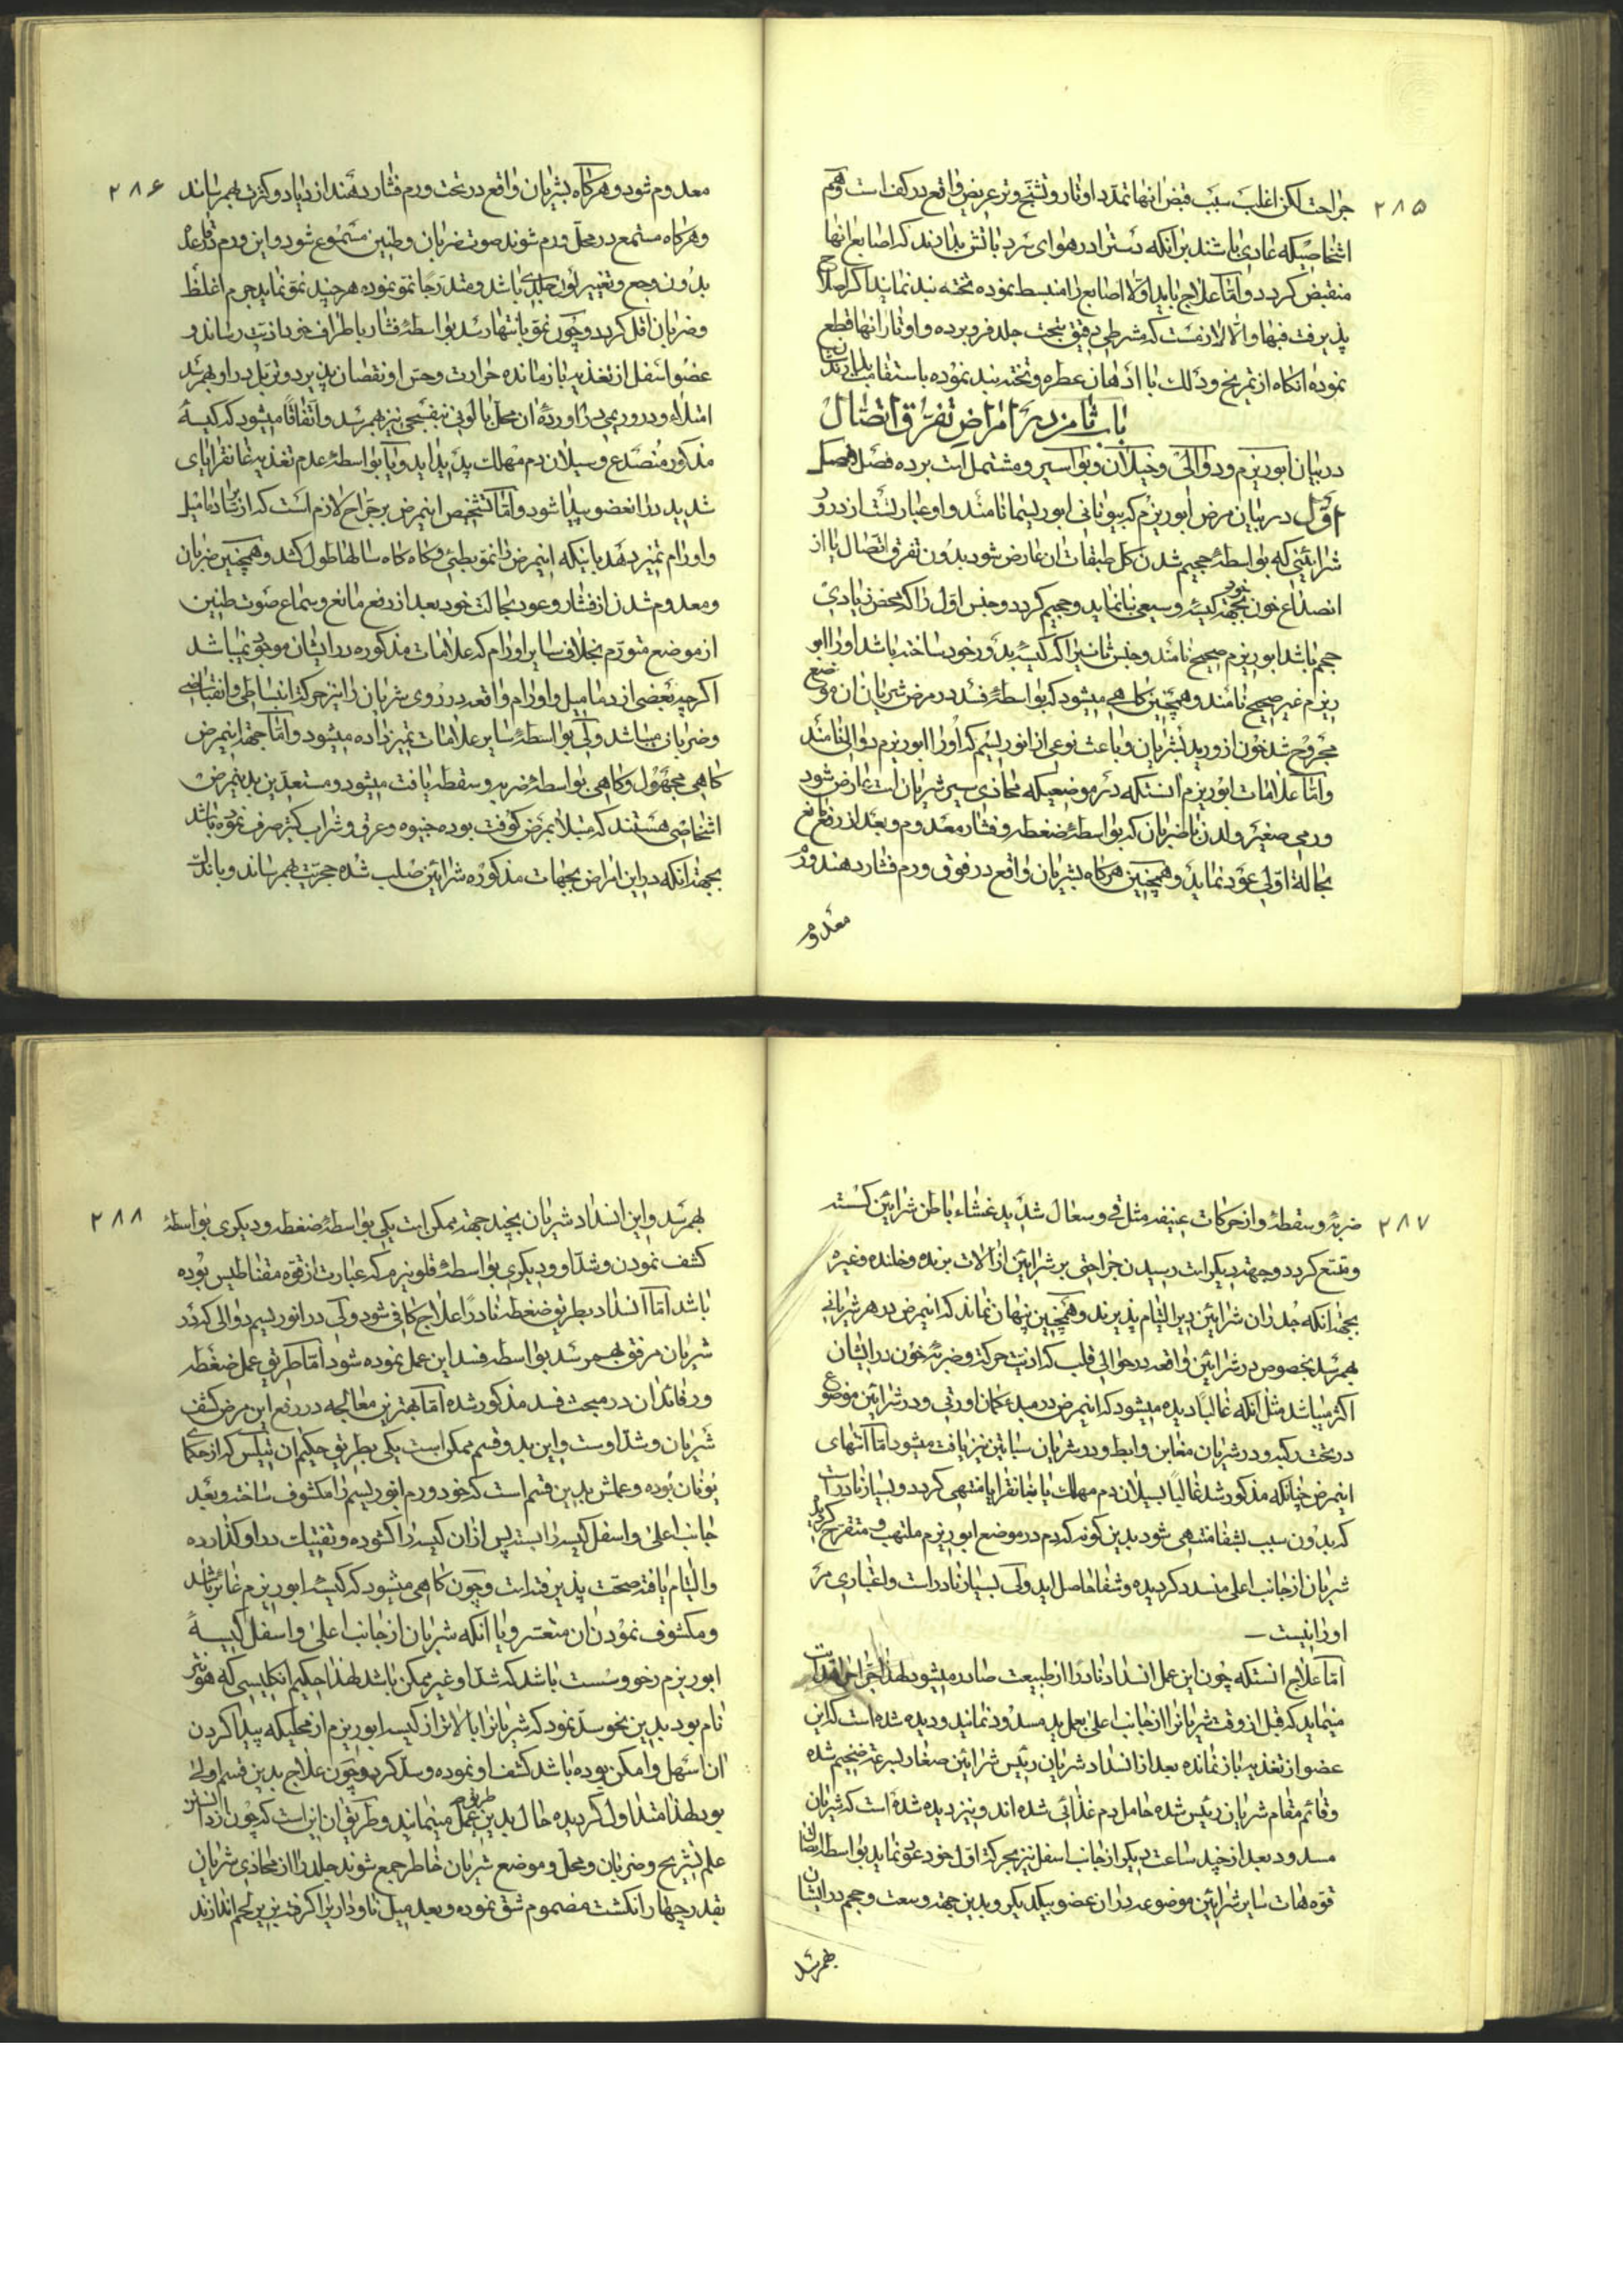 ۲۸۵
جراحت لکن اغلب سبب قبض انها تمدد اوتار و تشنج وتر عریض واقع در کف است و هم
اشخاصیکه عادی باشند برآنکه دستر ادر هوای سرد باتش بدارند که اصابع انها
منقبض کردد و اما علاج باید اولا اصابع را منبسط نموده تخته بند نمایند اکر اصلاح
پذیرفت فبها و الا لازمست که شرطی دقیق بتحت جلد فرو برده و اوتار انها قطع
نموده انکاه از تمریخ و دلک با ادهان عطره و تخته بند نموده باستقامت بدارند
باب ثامن در امراض تفرق اتصال
در بیان ابوریزم و دوالی و خیلان و بواسیر و مشتمل است بر ده فصل فصل
اول در بیان مرض ابوریزم که بیونانی ابوریسما نامند و او عبارتست از درو
شرائینی که بواسطه حجیم شدن کل طبقات ان عارض شود بدون تفرق اتصال یا از
انصداع خون بجهة خود کیسه وسیعی بنا نماید و حجیم کردد و جنس اول را که محض زیادی
حجم باشد ابوریزم صحیح نامند و جنس ثانی را که کیسه بدور خود ساخته باشد او را ابو
ریزم غیر صحیح نامند و همچنین کاهی میشود که بواسطه فسد در مرض شریان ان موضع
مجروح شد خون از ورید بشریان و باعث نوعی از انوریسم که او را ابوریزم دوالی نامند
و اما علامات ابوریزم آنستکه در موضعیکه محاذی سیر شریان است عارض شود
ورمی صغیر و لدن با ضربان که بواسطه ضغطه و فشار معدوم و بعد از رفع مانع
بحالة اولی عود نماید و همچنین هرکاه بشریان واقع در فوق ورم فشار دهند ورم
معدوم
۲۸۶
معدوم شود و هرکاه بشریان واقع در تحت ورم فشار دهند ازدیاد و کثرت بهم رساند
و هرکاه مستمع در محل ورم شوند صوت ضربان و طنین مسموع شود و این ورم
بدون وجع و تغییر لون جلدی باشد و متدرجا نمو نموده هر چند نمو نماید جرم اغلظ
و ضربان اقل کردد و چون نمو بانتها رسد بواسطه فشار باطراف خود اذیت رساند و
عضو اسفل از تغذیه باز مانده حرارت و حس او نقصان پذیرد و تزبل در او بهم رسد
امتلاء و دروریمی در اورده ان محل با لونی بنفسجی نیز بهم رسد و اتفاقا میشود که کیسه
مذکور منصدع و سیلان دم مهلک پدید اید و یا بواسطه عدم تغذیه غانقرایای
شدید در انعضو پیدا شود و اما تشخیص اینمرض بر جراح لازم است که از سایر دمامیل
و اورام تمیز دهد باینکه اینمرض را نمو بطئی و کاه کاه سالها طول کشد و همچنین ضربان
و معدوم شدن از فشار و عود بحالت خود بعد از رفع مانع و سماع صوت طنین
از موضع متورم بخلاف سایر اورام که علامات مذکوره در ایشان موجود نمیباشد
اکرچه بعضی از دمامیل و اورام واقعه در روی شریان را نیز حرکة انبساطی و انقباضی
و ضربان میباشد ولی بواسطه سایر علامات تمیز داده میشود و اما جهة اینمرض
کاهی مجهول و کاهی بواسطه ضربه و سقطه یافت میشود و مستعدین بدینمرض
اشخاصی هستند که مبتلا بمرض کوفت بوده جیوه و عرق و شراب کثیر صرف نموده باشند
بجهة انکه در این امراض بجهات مذکوره شرائین صلب شده حجریت بهم رساند و باندک
۲۸۷
ضربه و سقطه و از حرکات عنیفه مثل قی و سعال شدید غشاء باطن شرائین کسسته
و متسع کردد و جهة دیکر است رسیدن جراحتی بر شرائین از آلات برنده و خلنده و غیره
بجهة انکه جدران شرائین دیر التیام پذیرند و همچنین پنهان نماند که اینمرض در هر شریانی
بهم رسد بخصوص در شرائین واقعه در حوالی قلب که اذیت حرکة و ضربه خون در ایشان
اکثر میباشد مثل آنکه غالبا دیده میشود که اینمرض در مبدء کمان اورتی و در شرائین موضوع
در تحت رکبه و در شریان مغابن و ابط و در شریان سباتین نیز یافت میشود اما انتهای
اینمرض چنانکه مذکور شد غالبا بسیلان دم مهلک یا بغانقرایا منتهی کردد و بسیار نادر است
که بدون سبب بشفا منتهی شود بدین کونه که دم در موضع ابوریزم ملتهب و متقرح کردیده
شریان از جانب اعلی منسدد کردیده و شفا حاصل اید ولی بسیار نادر است و اعتباری مر
او را نیست
اما علاج انستکه چون این عمل انسداد نادرا از طبیعت صادر میشود لهذا جراح
مینماید که قبل از وقت شریانرا از جانب اعلی بعمل ید مسدود نمایند و دیده شده است که این
عضو از تغذیه باز نمانده بعد از انسداد شریان رئیس شرائین صغار بسرعة ضخیم شده
و قائم مقام شریان رئیس شده حامل دم غذائی شده اند و نیز دیده شده است که شریان
مسدود بعد از چند ساعت دیکر از جانب اسفل نیز بحرکة اول خود عود نماید بواسطه اتصال
فوه هات سایر شرائین موضوعه در ان عضو بیکدیکر و بدین جهة وسعت و حجم در ایشان
بهمرسد
۲۸۸
بهمرسد و این انسداد شریان بچند جهة ممکن است یکی بواسطه ضغطه و دیکری بواسطه
کشف نمودن و شد او و دیکری بواسطه قلونیزم که عبارت از قوه مقناطیس بوده
باشد اما انسداد بطریق ضغطه نادرا علاج کافی شود ولی در انوریسم دوالی که در
شریان مرفق بهمرسد بواسطه فسد این عمل نموده شود اما طریق عمل ضغطه
و رفائد ان در مبحث فسد مذکور شده اما بهترین معالجه در رفع این مرض کشف
شریان و شد اوست و این بدو قسم ممکن است یکی بطریق حکیم ان تیلس که از حکمای
یونان بوده و عملش بدین قسم است که خود ورم انوریسم را مکشوف ساخته و بعد
جانب اعلی و اسفل کیسه را بسته پس از ان کیسه را کشوده و تفتیلات در او کذارده
و التیام یافته صحت پذیرفته است و چون کاهی میشود که کیسه ابوریزم غائر باشد
و مکشوف نمودن ان متعسر و یا آنکه شریان از جانب اعلی و اسفل کیسه
ابوریزم رخو و سست باشد که شد او غیر ممکن باشد لهذا حکیم انکلیسی که هونتر
نام بود بدین نحو سد نمود که شریانرا بالاتر از کیسه ابوریزم از محلیکه پیدا کردن
ان اسهل و امکن بوده باشد کشف او نموده و سد کرد و چون علاج بدین قسم اولی
بود لهذا متداول کردیده حال بدین طریق عمل مینمایند و طریق ان این است که چون از
علم تشریح و ضربان و محل و موضع شریان خاطر جمع شوند جلد را از محاذی شریان
بقدر چهار انکشت مضموم شق نموده و بعد میل ناوداریرا کرفته بزیر لحم اندازند